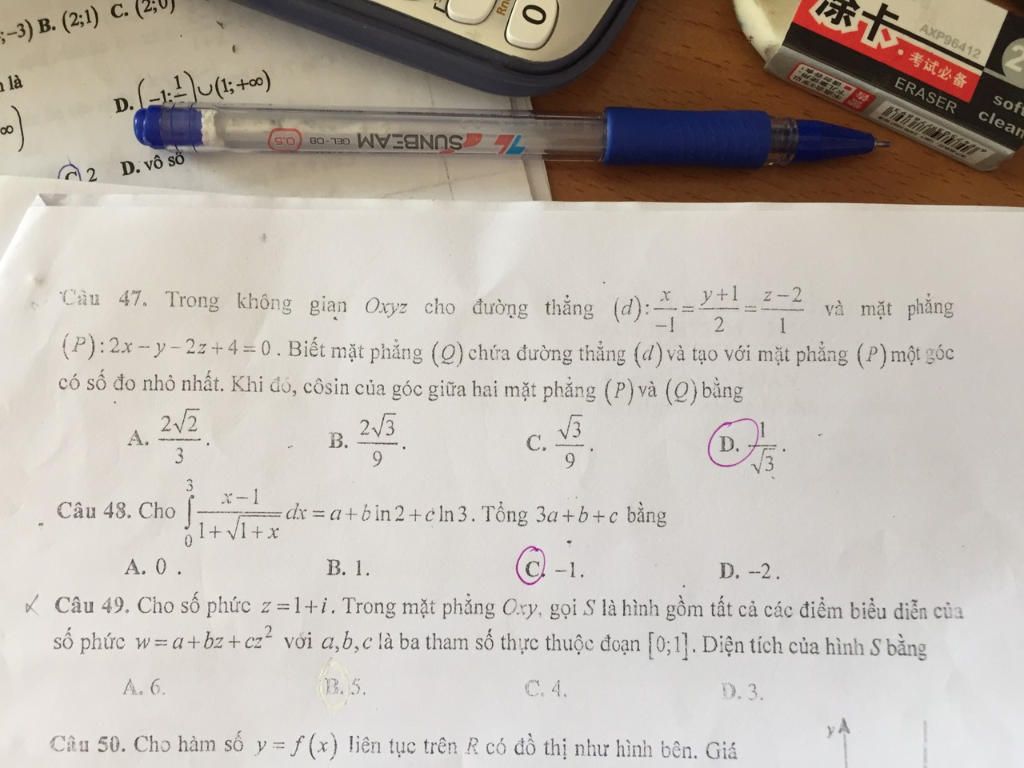 ;–3) B. (2;1) C. (2;0)
Rn 0
là
D. (–1; 1/ )∪(1;+∞)
∞)
C 2 D. vô số
SUNBEAM GEL-08 0.5
涂卡 · 考试必备
AXP96412
2
ERASER
soft
clean
Câu 47. Trong không gian Oxyz cho đường thẳng (d): x/–1 = (y+1)/2 = (z–2)/1 và mặt phẳng
(P): 2x – y – 2z + 4 = 0. Biết mặt phẳng (Q) chứa đường thẳng (d) và tạo với mặt phẳng (P) một góc
có số đo nhỏ nhất. Khi đó, côsin của góc giữa hai mặt phẳng (P) và (Q) bằng
A. 2√2/3. B. 2√3/9. C. √3/9. D. 1/√3.
Câu 48. Cho ∫₀³ (x–1)/(1+√(1+x)) dx = a + b ln 2 + c ln 3. Tổng 3a + b + c bằng
A. 0. B. 1. C. –1. D. –2.
Câu 49. Cho số phức z = 1 + i. Trong mặt phẳng Oxy, gọi S là hình gồm tất cả các điểm biểu diễn của
số phức w = a + bz + cz² với a, b, c là ba tham số thực thuộc đoạn [0;1]. Diện tích của hình S bằng
A. 6. B. 5. C. 4. D. 3.
Câu 50. Cho hàm số y = f(x) liên tục trên R có đồ thị như hình bên. Giá
y